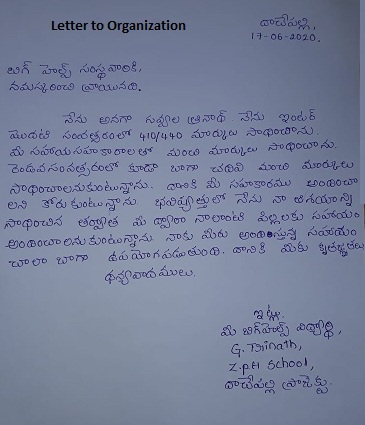 Letter to Organization
దాచేపల్లి,
17-06-2020.
బిగ్ హెల్ప్ సంస్థవారికి,
నమస్కరించి వ్రాయునది.
నేను అనగా గువ్వల త్రినాథ్. నేను ఇంటర్
మొదటి సంవత్సరంలో 410/440 మార్కులు సాధించాను.
మీ సహాయసహకారాలతో మంచి మార్కులు సాధించాను.
రెండవసంవత్సరంలో కూడా బాగా చదివి మంచి మార్కులు
సాధించాలనుకుంటున్నాను. దానికి మీ సహకారము అందించా
లని కోరుకుంటున్నాను. భవిష్యత్తులో నేను నా ఆశయాన్ని
సాధించిన తర్వాత మీ ద్వారా నాలాంటి పిల్లలకు సహాయం
అందించాలనుకుంటున్నాను. నాకు మీరు అందిస్తున్న సహాయం
చాలా బాగా ఉపయోగపడుతుంది. దానికి మీకు కృతజ్ఞతలు
ధన్యవాదములు.
ఇట్లు
మీ బిగ్‌హెల్ప్ విద్యార్థి,
G. Trinath,
Z.pH School,
దాచేపల్లి ప్రాజెక్టు.